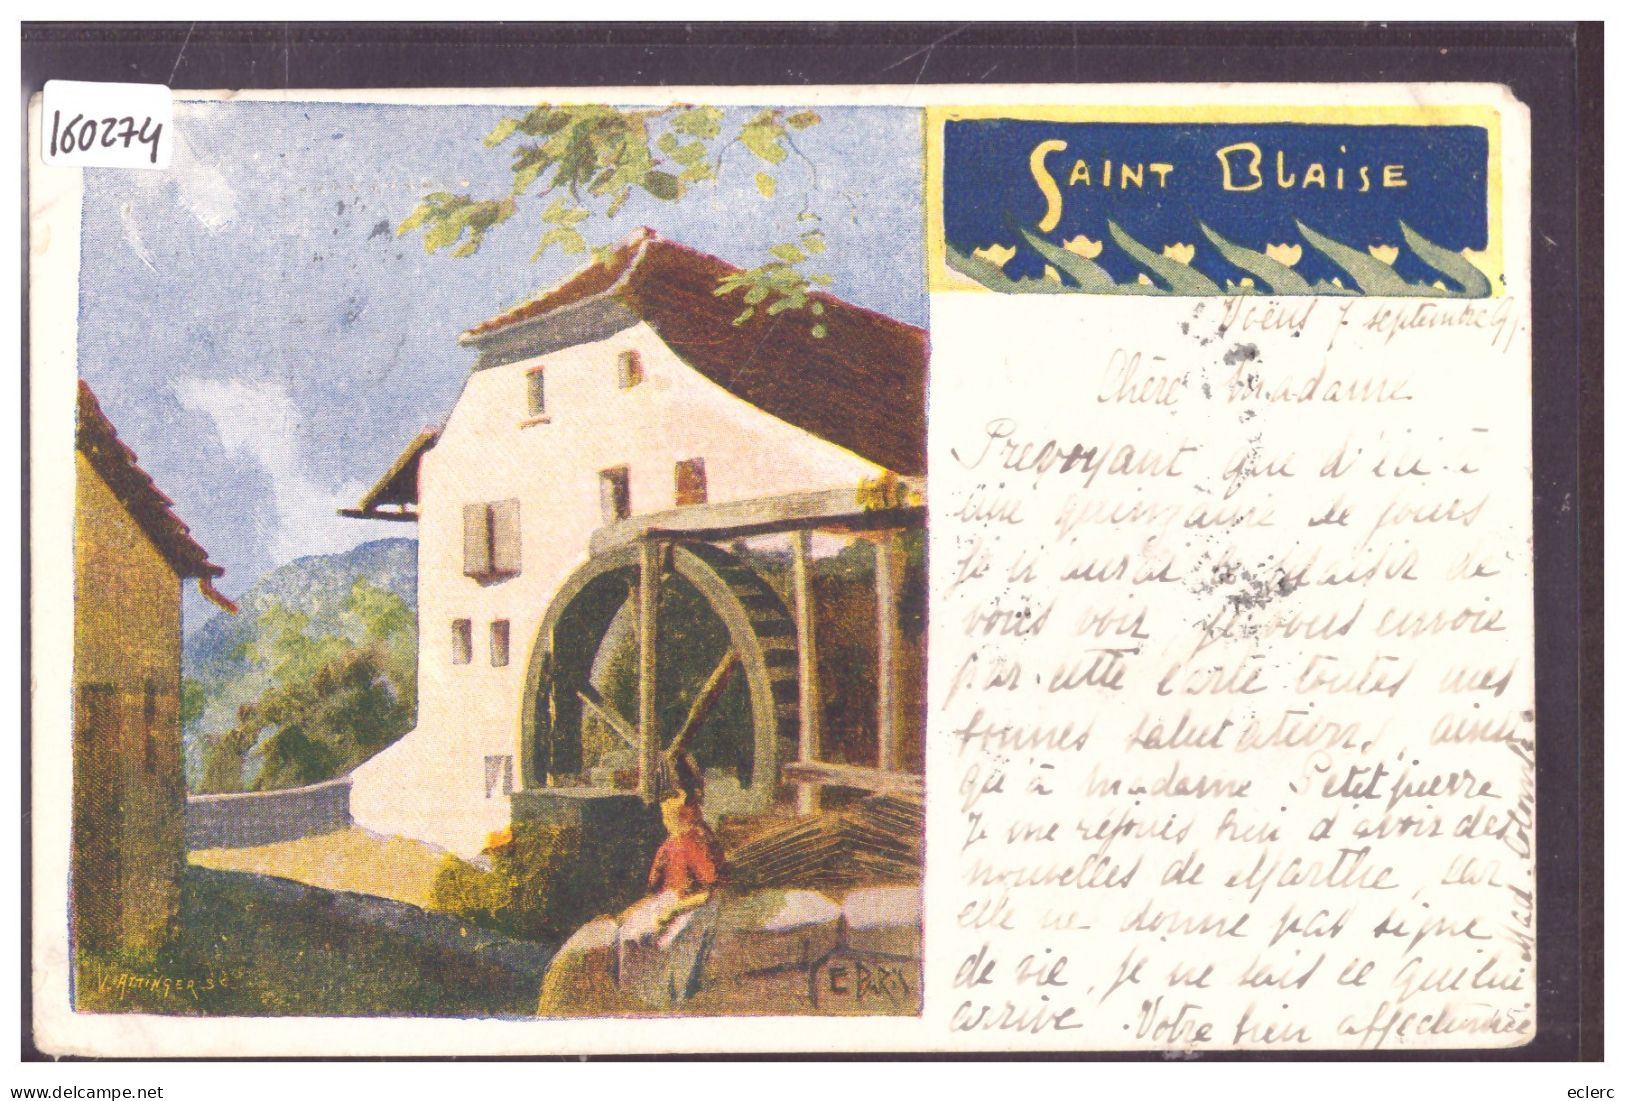 160274
SAINT BLAISE
Voëns 7 septembre 99.
Chère Madame
Prevoyant que d'ici à
une quinzaine de jours
je n'aurai le plaisir de
vous voir, je vous envoie
par cette carte toutes mes
bonnes salutations, ainsi
qu'à madame Petitpierre
Je me réjouis bien d'avoir des
nouvelles de Marthe, car
elle ne donne pas signe
de vie, je ne sais ce qui lui
arrive. Votre bien affectionnée
Mad. Colomb.
V. ATTINGER SC.
PARIS
eclerc